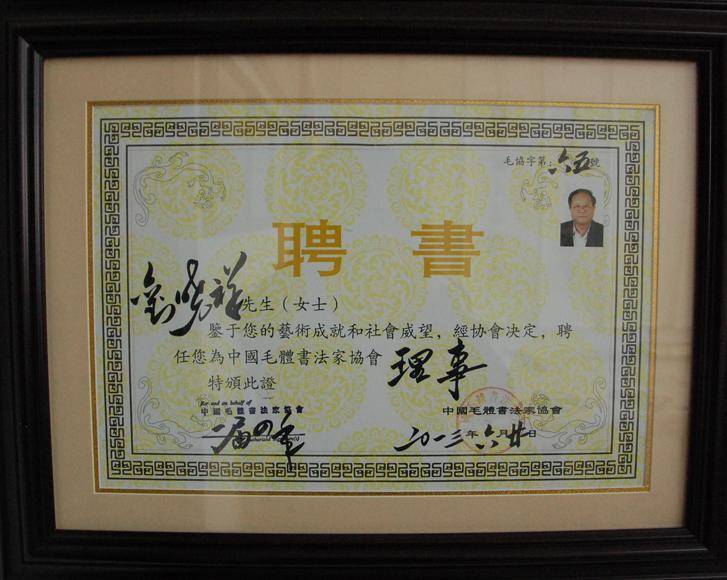 毛協字第:六五號
聘書
劉曉祥先生(女士)
鑒于您的藝術成就和社會威望，經协會决定，聘
任您為中國毛體書法家協會理事
特頒此證
For and on behalf of
中國毛體書法家協會
中國毛體書法家協會
一届四年
二〇一三年六月廿日